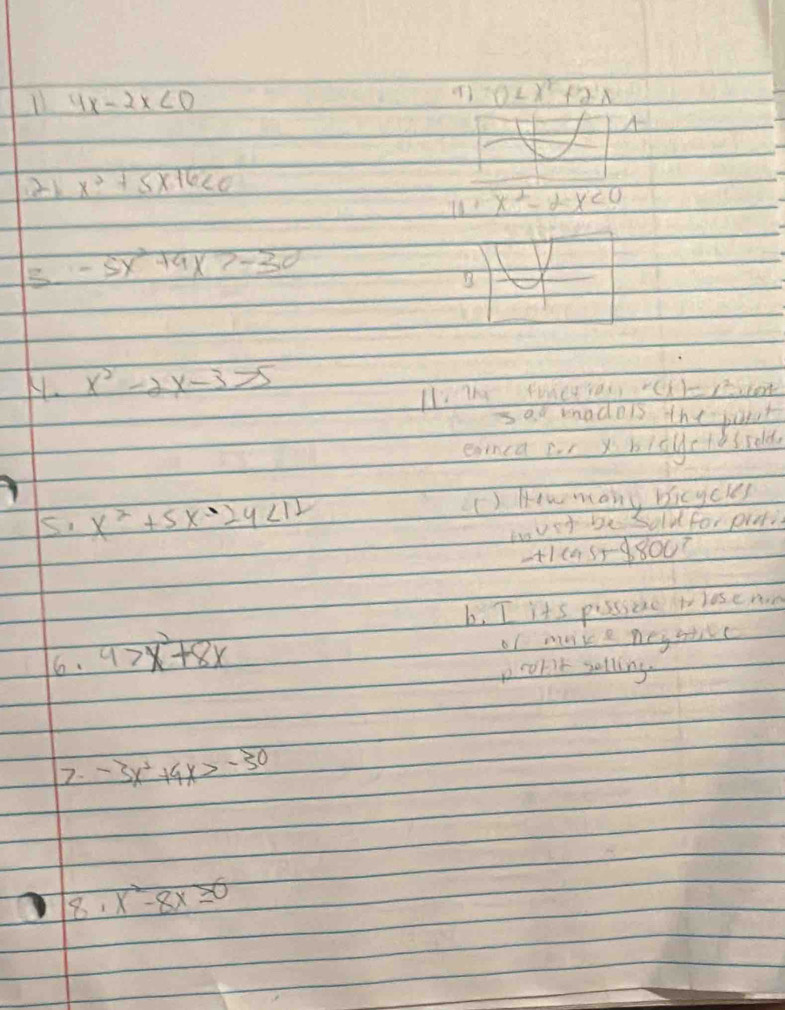 1) 4x-2x<0
2) x²+5x+6<0
3. -5x²+9x>-30
4. x²-2x-3≥5
5. x²+5x-24<12
6. 9>x²+8x
7. -3x²+9x>-30
8. x²-8x≥0
9) 0<x²+2x
A
x²-2x<0
B
11. The function r(x)
models the
earned for x sold.
How many bicycles
must be sold for
at least $800?
b. I its possible to lose
or make negative
profit selling.